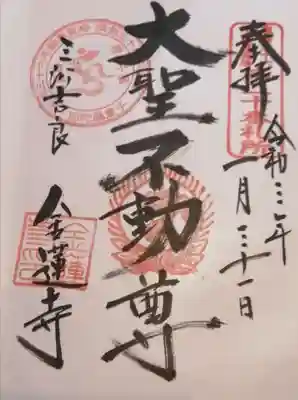 奉拝
令和三年
一月三十一日
大聖不動尊
三州吉良
金蓮寺